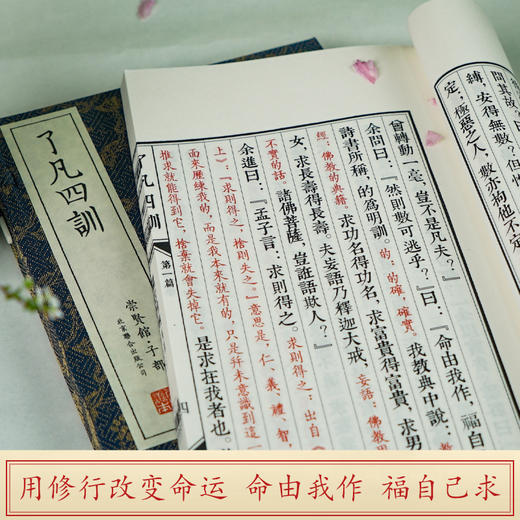 問其故?
縛,安得無數?但惟
定;極惡之人,數亦拘他不定
曾轉動一毫,豈不是凡夫?」
余問曰:「然則數可逃乎?」曰:「命由我作,福自
詩書所稱,的為明訓。的:的確,確實。我教典中說:
經:佛教的典籍 求功名得功名,求富貴得富貴,求男
女,求長壽得長壽。夫妄語乃釋迦大戒,妄語:佛教用
不實的話。諸佛菩薩,豈誑語欺人?」
余進曰:「孟子言:『求則得之』求則得之:出自
上):「求則得之,捨則失之。」意思是,仁、義、禮、智,
面來歷練我的,而是我本來就有的,只是并未意識到這一
推求就能得到它,捨棄就會失掉它。是求在我者也。
了凡四訓 第一篇 四
了凡四訓
崇賢館·子部
北京聯合出版公司
用修行改变命运 命由我作 福自己求